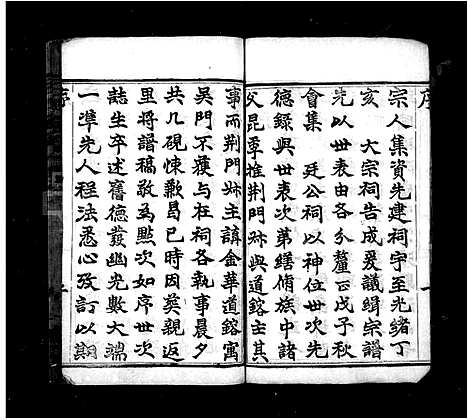 序
宗人集資先建祠宇至光緒丁
亥　大宗祠告成爰議緝宗譜
先以世表由各分釐正戊子秋
會集　廷公祠以神位世次先
德錄與世表次第繕脩族中諸
父昆季推荆門㛮與道鎔主其
事而荆門㛮主謓金華道鎔寓
吳門不獲與在祠各執事晨夕
共几硯悚歉曷已時因奠親返
里將譜稿敬為點次如序世次
誌生卒述舊德發幽光數大端
一準先人程法悉心攷訂以期
序
一